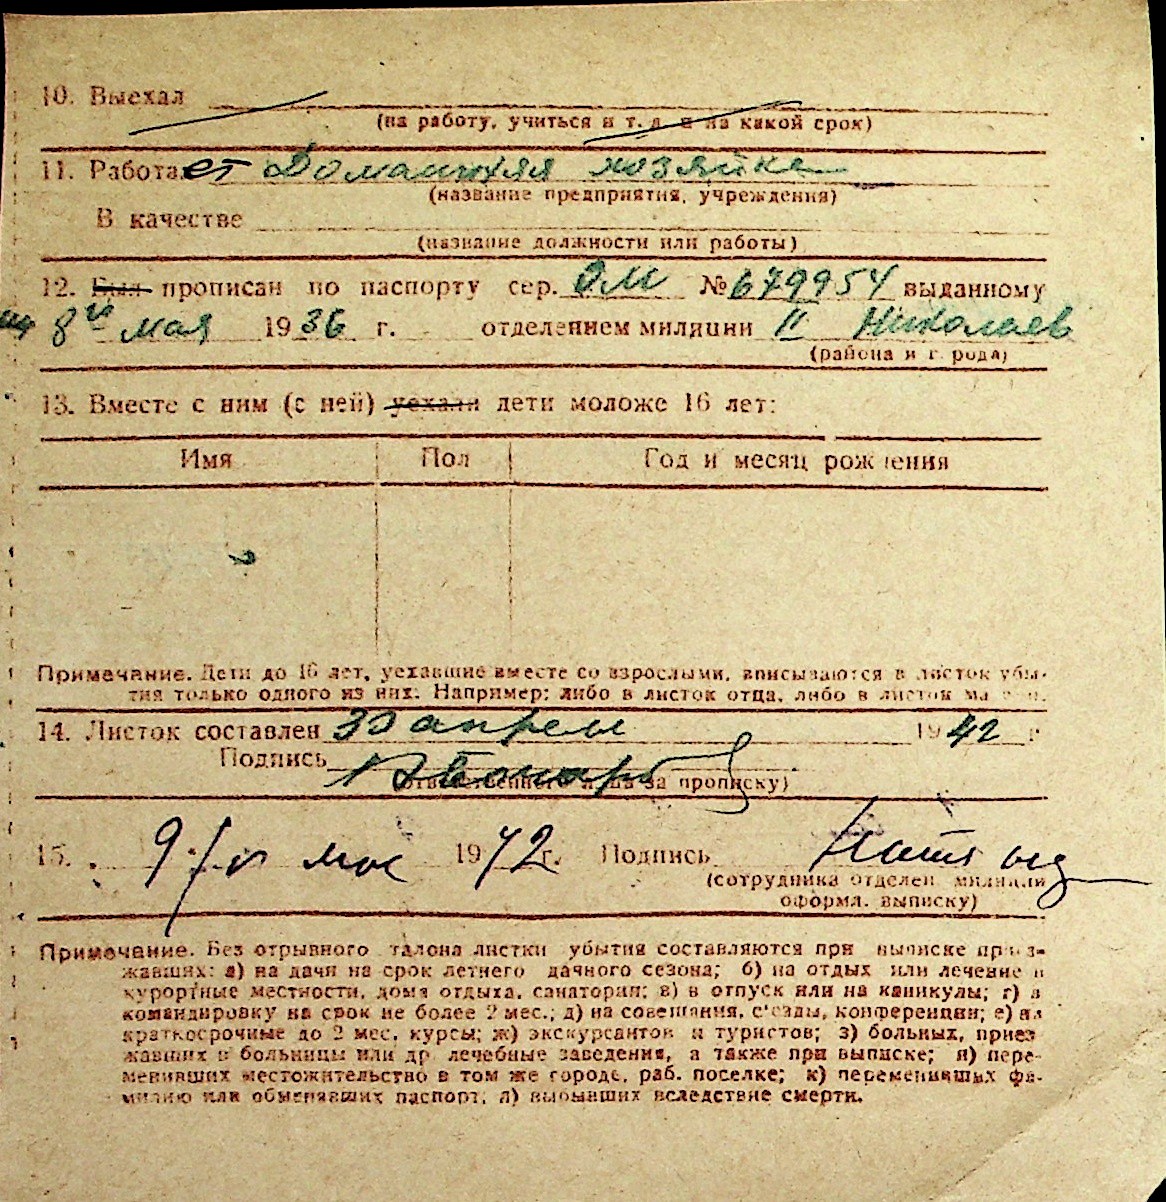 10. Выехал
(на работу, учиться и т. д. и на какой срок)
11. Работает Домашняя хозяйка
(название предприятия, учреждения)
В качестве
(название должности или работы)
12. Был прописан по паспорту сер. ОМ № 679954 выданному
8го мая 1936 г. отделением милиции II Николаев
(района и города)
13. Вместе с ним (с ней) уехали дети моложе 16 лет:
Имя Пол Год и месяц рождения
Примечание. Дети до 16 лет, уехавшие вместе со взрослыми, вписываются в листок убы-
тия только одного из них. Например: либо в листок отца, либо в листок
14. Листок составлен 30 апреля 1942 г
Подпись
(ответственного лица за прописку)
15. 9 мая 1942 г. Подпись
(сотрудника отделен. милиции
оформл. выписку)
Примечание. Без отрывного талона листки убытия составляются при выписке приез-
жавших: а) на дачи на срок летнего дачного сезона; б) на отдых или лечение в
курортные местности, дома отдыха, санатории; в) в отпуск или на каникулы; г) в
командировку на срок не более 2 мес.; д) на совещания, съезды, конференции; е) на
краткосрочные до 2 мес. курсы; ж) экскурсантов и туристов; з) больных, приез
жавших в больницы или др. лечебные заведения, а также при выписке; и) пере-
менивших местожительство в том же городе, раб. поселке; к) переменивших фа-
милию или обменявших паспорт; л) выбывших вследствие смерти.